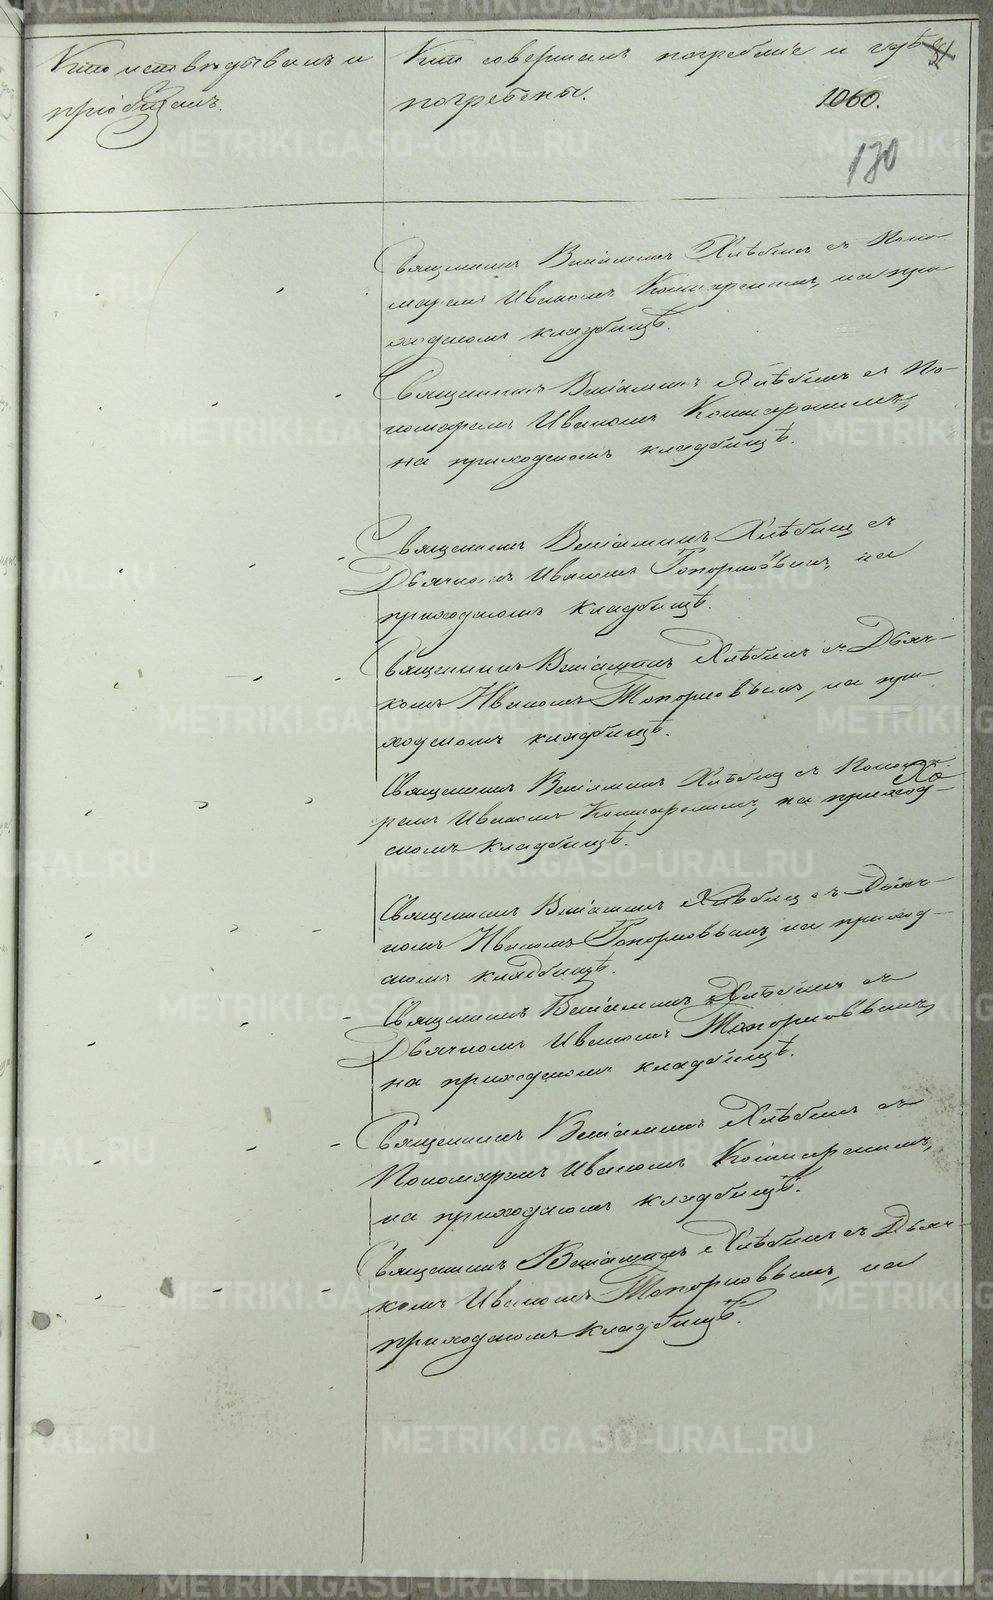 Кто исповѣдывалъ и
пріобщалъ.
Кто совершалъ погребеніе и гдѣ
погребены.
1060.
130
Священникъ Веніаминъ Хлѣбинъ съ Поно
маремъ Иваномъ Кошкаревымъ, на при
ходскомъ кладбищѣ.
Священникъ Веніаминъ Хлѣбинъ съ По-
номаремъ Иваномъ Кошкаревымъ,
на приходскомъ кладбищѣ.
Священникъ Веніаминъ Хлѣбинъ съ
Дьячкомъ Иваномъ Топорковымъ, на
приходскомъ кладбищѣ.
Священникъ Веніаминъ Хлѣбинъ съ Дьяч-
комъ Иваномъ Топорковымъ, на при-
ходскомъ кладбищѣ.
Священникъ Веніаминъ Хлѣбинъ съ Понома-
ремъ Иваномъ Кошкаревымъ, на приход-
скомъ кладбищѣ.
Священникъ Веніаминъ Хлѣбинъ съ Дьяч-
комъ Иваномъ Топорковымъ, на приход-
скомъ кладбищѣ.
Священникъ Веніаминъ Хлѣбинъ съ
Дьячкомъ Иваномъ Топорковымъ,
на приходскомъ кладбищѣ.
Священникъ Веніаминъ Хлѣбинъ съ
Пономаремъ Иваномъ Кошкаревымъ,
на приходскомъ кладбищѣ.
Священникъ Веніаминъ Хлѣбинъ съ Дьяч-
комъ Иваномъ Топорковымъ, на
приходскомъ кладбищѣ.
METRIKI.GASO-URAL.RU